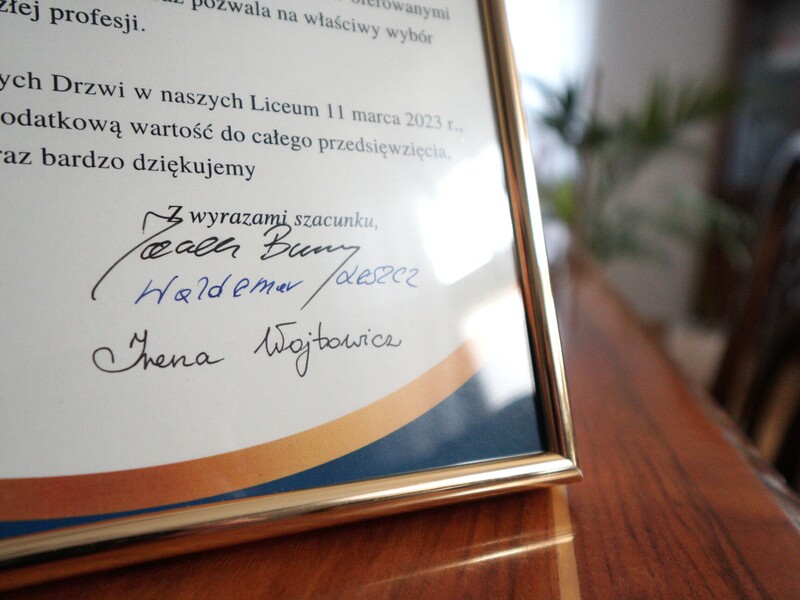 oferowanymi
pozwala na właściwy wybór
złej profesji.
ych Drzwi w naszych Liceum 11 marca 2023 r.,
odatkową wartość do całego przedsięwzięcia,
raz bardzo dziękujemy
Z wyrazami szacunku,
Waldemar
Irena Wojtowicz